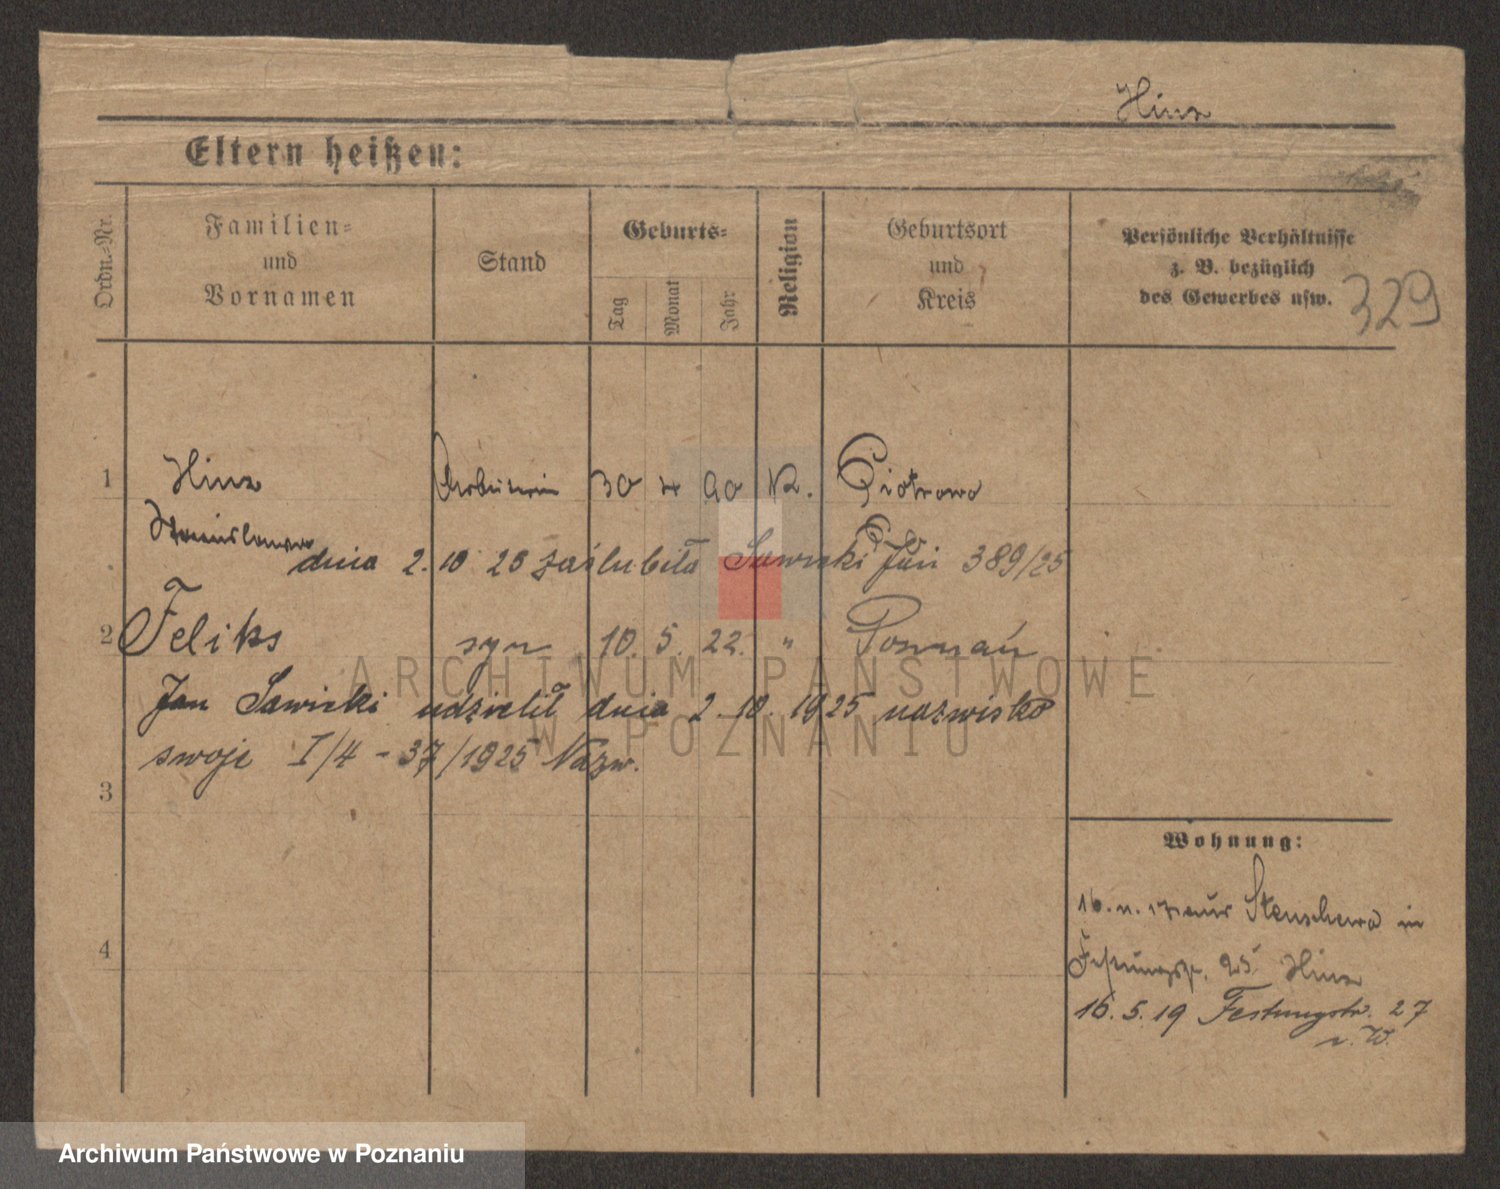 Hinz
Eltern heißen:
Ordn.-Nr.
Familien-
und
Vornamen
Stand
Geburts-
Tag
Monat
Jahr
Religion
Geburtsort
und
Kreis
Persönliche Verhältnisse
z. B. bezüglich
des Gewerbes usw.
329
1 Hinz Arbeiterin 30 4 90 K. Piotrowo
Stanislawa
dnia 2. 10 25 zaślubiła Sawicki Jan 389/25
2 Feliks syn 10. 5. 22. " Poznań
Jan Sawicki udzielił dnia 2. 10. 1925 nazwisko
swoje I/4 - 37/1925 Nazw.
3
4
Wohnung:
16. n. 17 aus Stenschewo in
Festungsstr. 25 Hinz
16. 5. 19 Festungstr. 27
ARCHIWUM PAŃSTWOWE
W POZNANIU
Archiwum Państwowe w Poznaniu